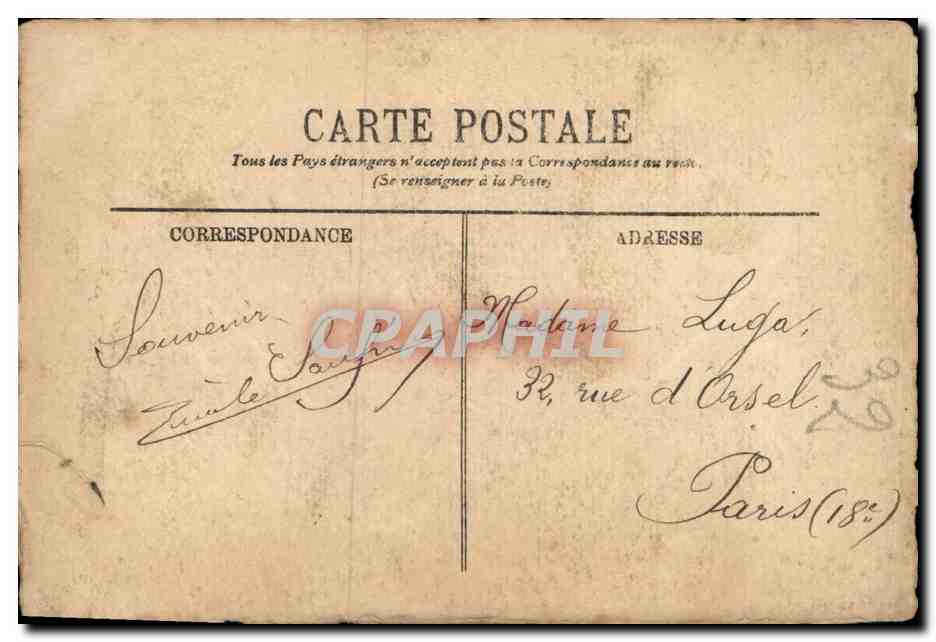 CARTE POSTALE
Tous les Pays étrangers n'acceptent pas la Correspondance au recto.
(Se renseigner à la Poste)
CORRESPONDANCE
ADRESSE
Souvenir
Emile
Madame Luga,
32, rue d'Orsel
Paris (18e)
32
CPAPHIL